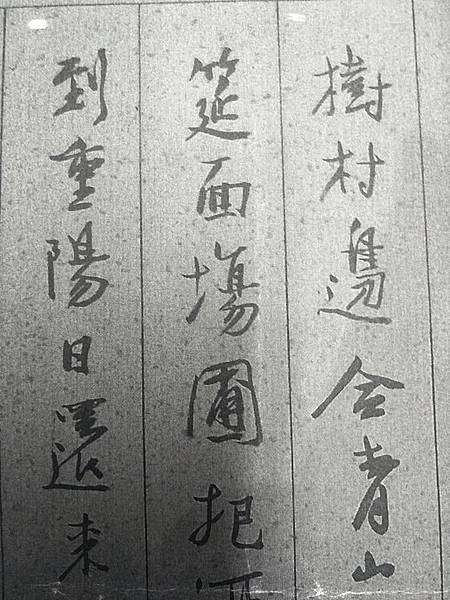 樹村邊合青山
筵面場圃把
到重陽日還来